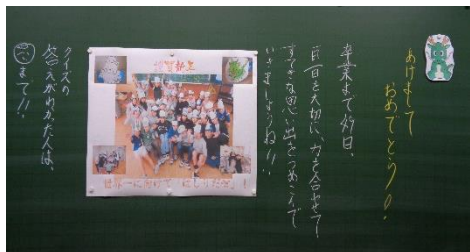 あけまして
おめでとう!
卒業まで49日。
一日一日を大切に、力を合わせて
すてきな思い出をつめこんで
いきましょうね!!
謹賀新年
世界一に向けて
クイズの
答えがわかった人は、
まで!!